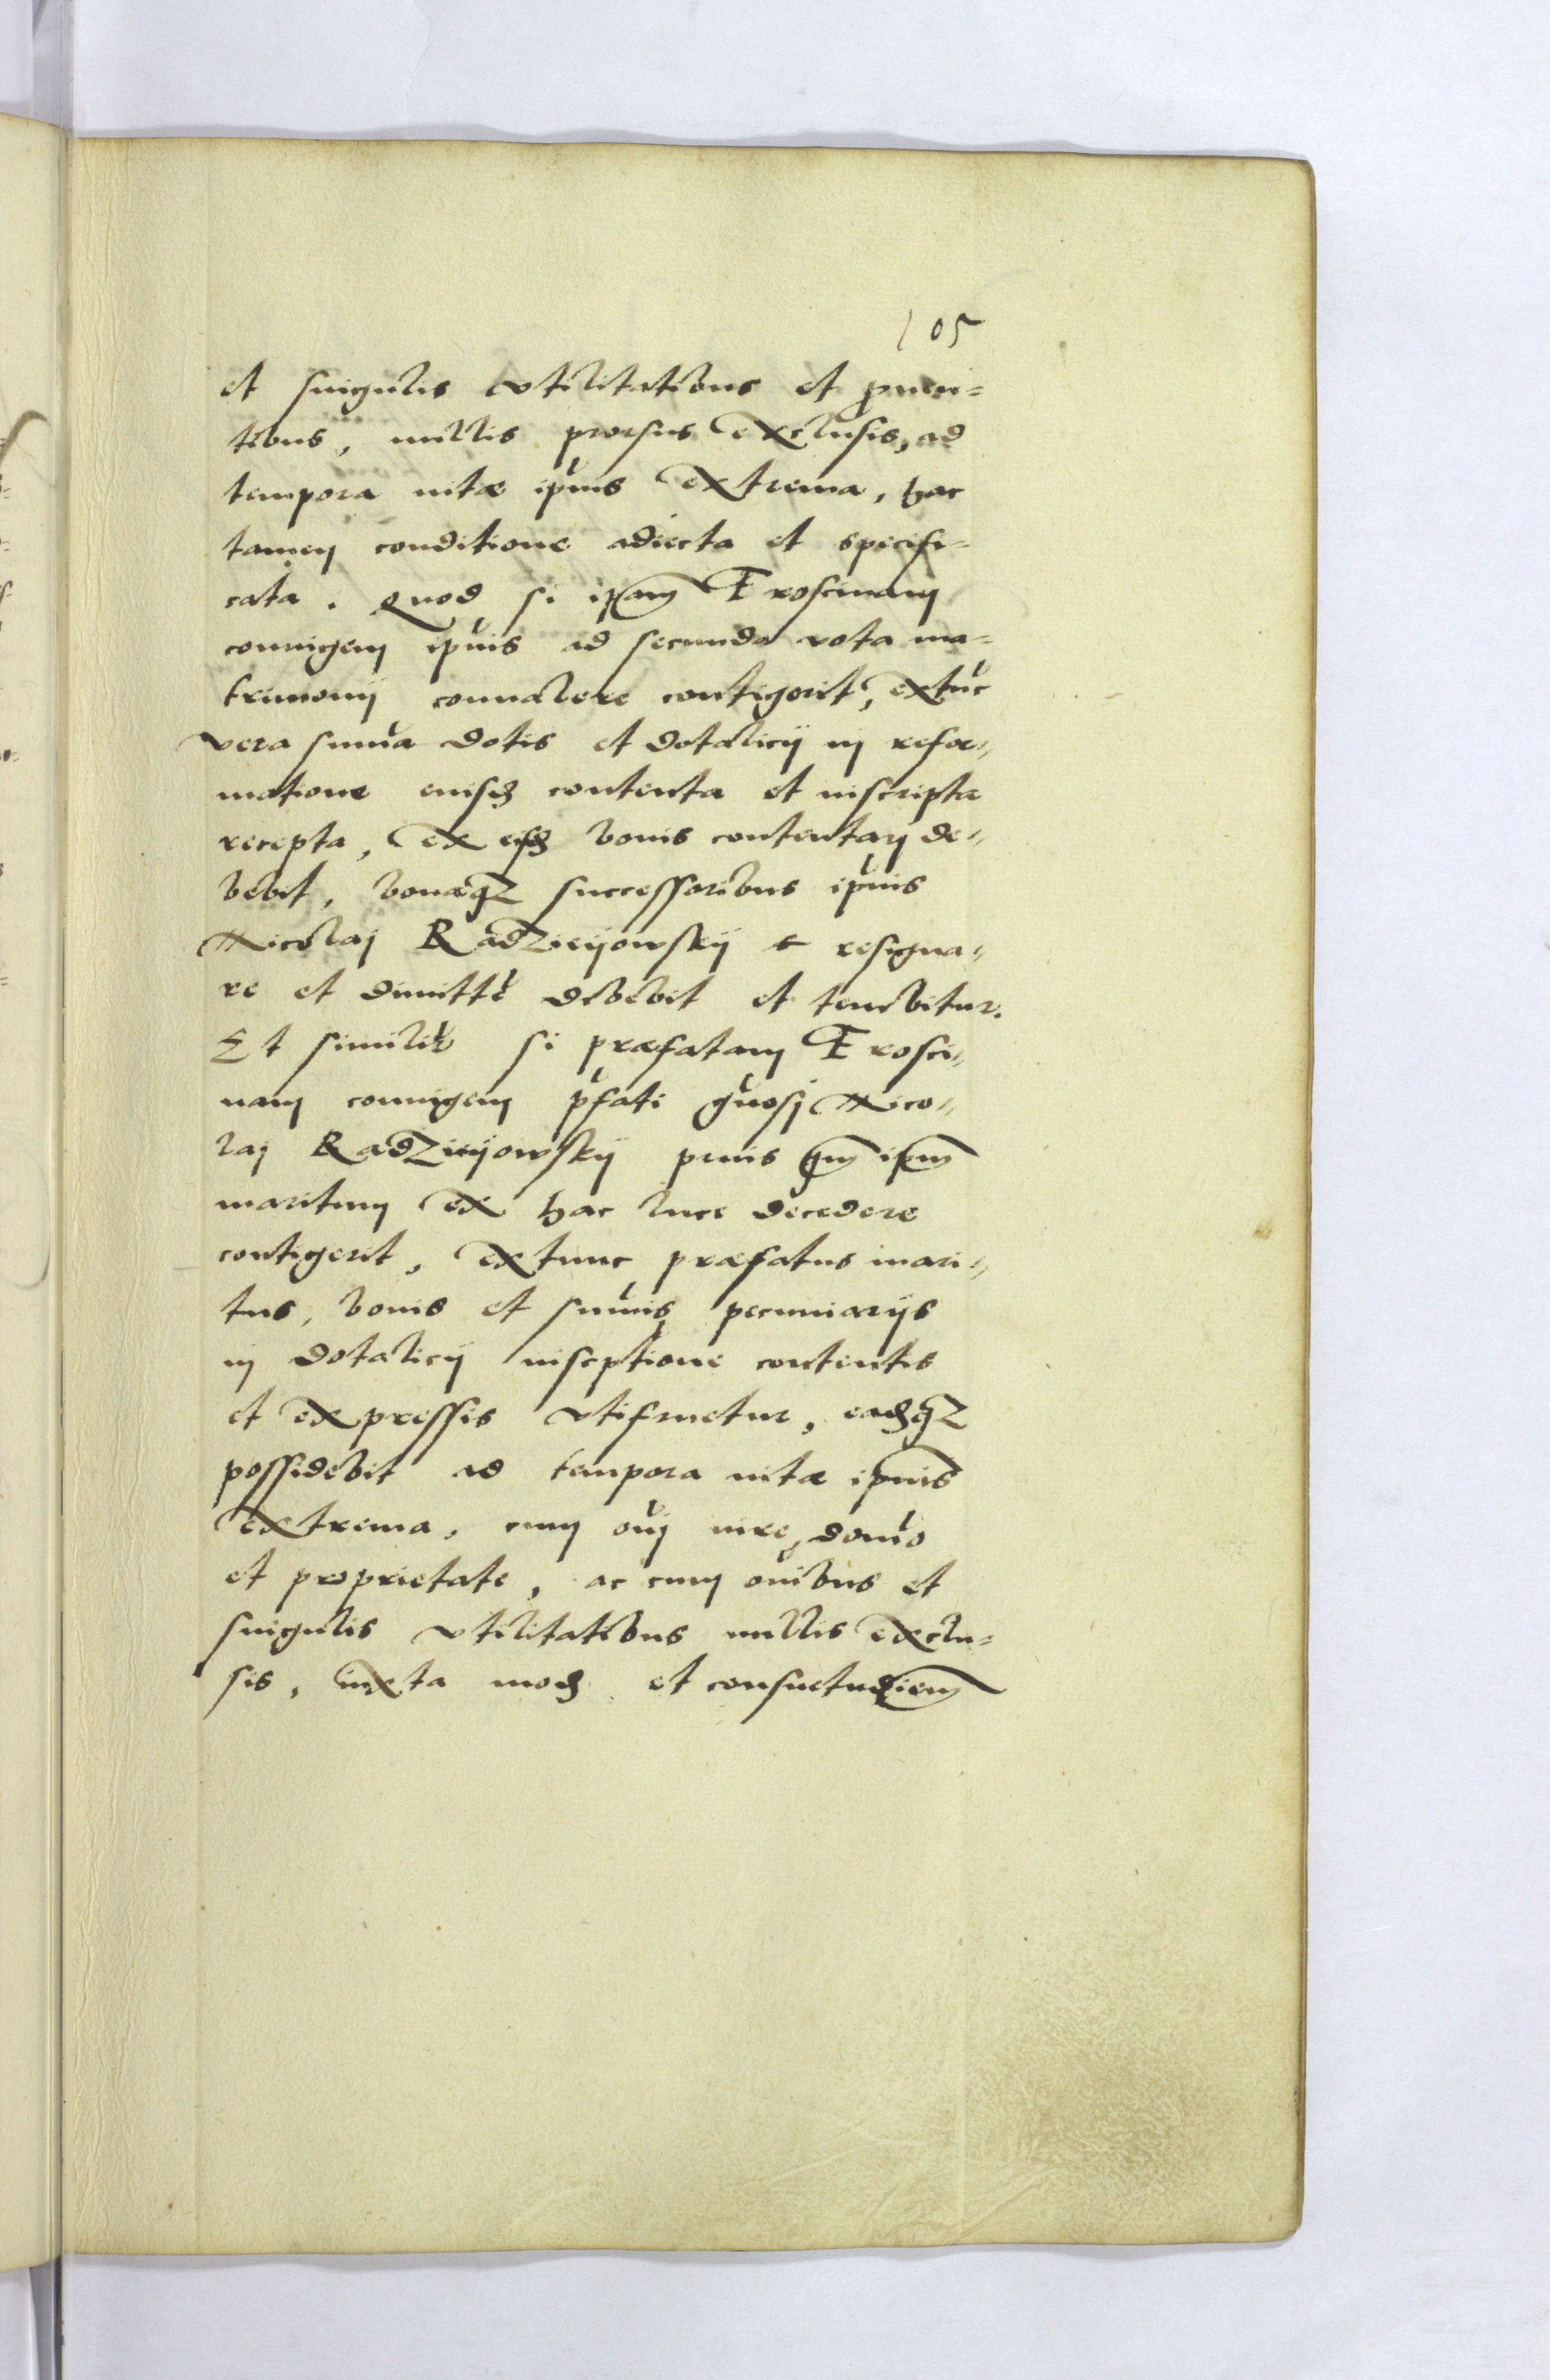 105
et singulis vtilitatibus et prouen=
tibus, nullis prorsus exclusis, ad
tempora uitæ ipius extrema, hac
tamen conditione adiecta et specifi=
cata. Quod si ipam Froscinam
coniugem ipius ad secunda vota ma=
trimonij conualere contigerit, extuc
vera suma dotis et dotalicij in refor=
matione eiusd contenta et inscripta
recepta, ex eisd bonis contentari de=
bebit, bonaq3 successoribus ipius
Nicolaj Radzieijowskij resigna=
re et dimitte debebit et tenebitur.
Et similir si præfatam Frosci=
nam coniugem pfati gnosj Nico=
laj Radzieijowskij prius qm ipm
maritum ex hac luce decedere
contigerit, extunc præfatus mari=
tus, bonis et sumis pecuniarijs
in dotalicij inscptione contentis
et expressis vtifruetur, eadq3
possidebit ad tempora uitæ ipius
extrema, cum oi iure, domio
et proprietate, ac cum oibus et
singulis vtilitatibus nullis exclu=
sis, iuxta mod et consuetudiem